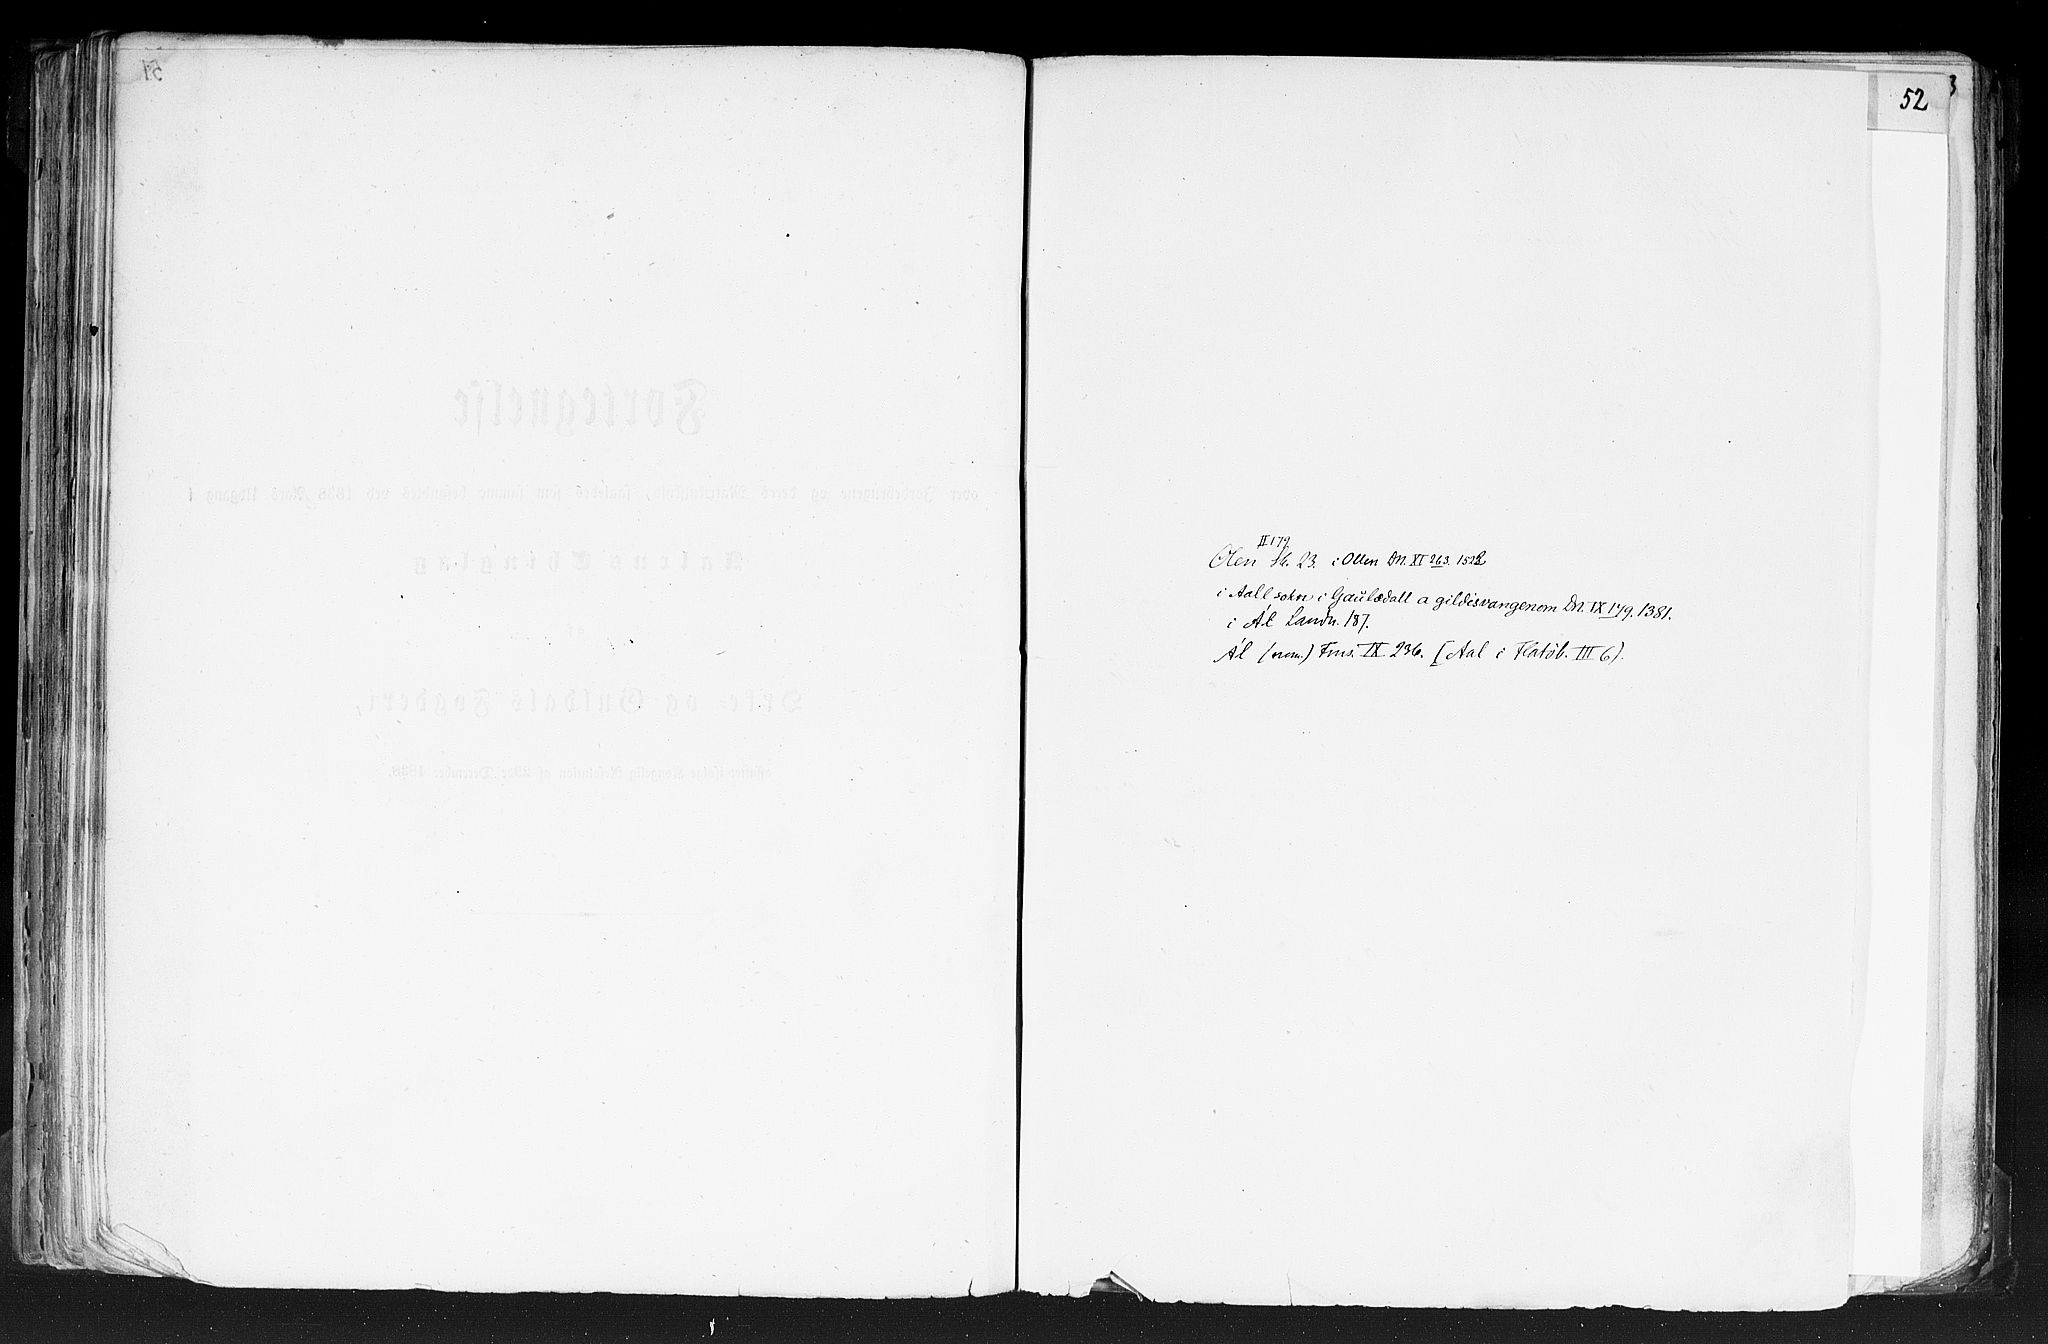 51
Fortegnelse
over Jordebrugene og deres Matrikulskyld, saaledes som samme befandtes ved 1838 Aars Udgang i
Aalens Thinglag
Orke- og Guldals Fogderi,
affattet ifølge Kongelig Resolution af 29de December 1836.
52
3
II 179
Olen Sk. 23. i Ollen DN. XI 263. 1522
i Aall sokn i Gaulædall a gildisvangenom DN. IX 179. 1381.
i Ál Landn. 187.
Ál (nom.) Fms. IX 236. [Aal i Flatöb. III 6).